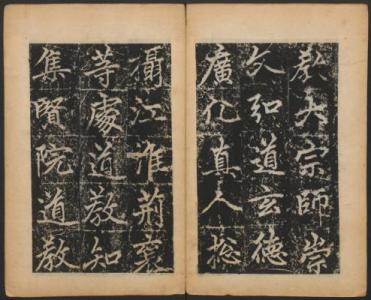 教大宗師崇
文弘道玄德
廣化真人摠
攝江淮荊襄
等處道教知
集賢院道教